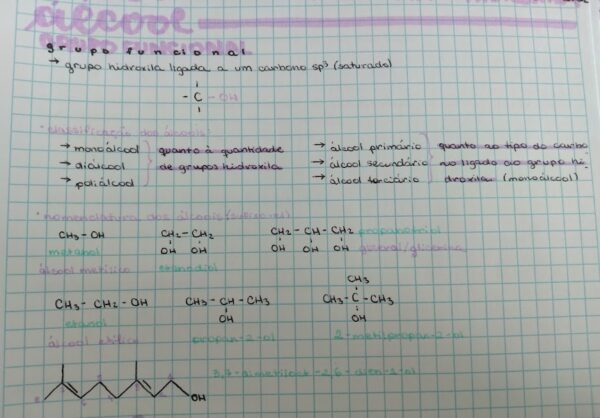 álcool
grupo funcional
→ grupo hidroxila ligada a um carbono sp³ (saturado)
- C - OH
• classificação dos álcoois:
→ monoálcool
→ diálcool
→ poliálcool
quanto à quantidade
de grupos hidroxila
→ álcool primário
→ álcool secundário
→ álcool terciário
quanto ao tipo do carbo
no ligado ao grupo hi
droxila (monoálcool)
• nomenclatura dos álcoois
CH₃ - OH
metanol
álcool metílico
CH₂ - CH₂
OH OH
etanodiol
CH₂ - CH - CH₂
OH OH OH
propanotriol
glicerol/glicerina
CH₃ - CH₂ - OH
etanol
álcool etílico
CH₃ - CH - CH₃
OH
propan-2-ol
CH₃
CH₃ - C - CH₃
OH
2-metilpropan-2-ol
OH
3,7-dimetiloct-2,6-dien-1-ol